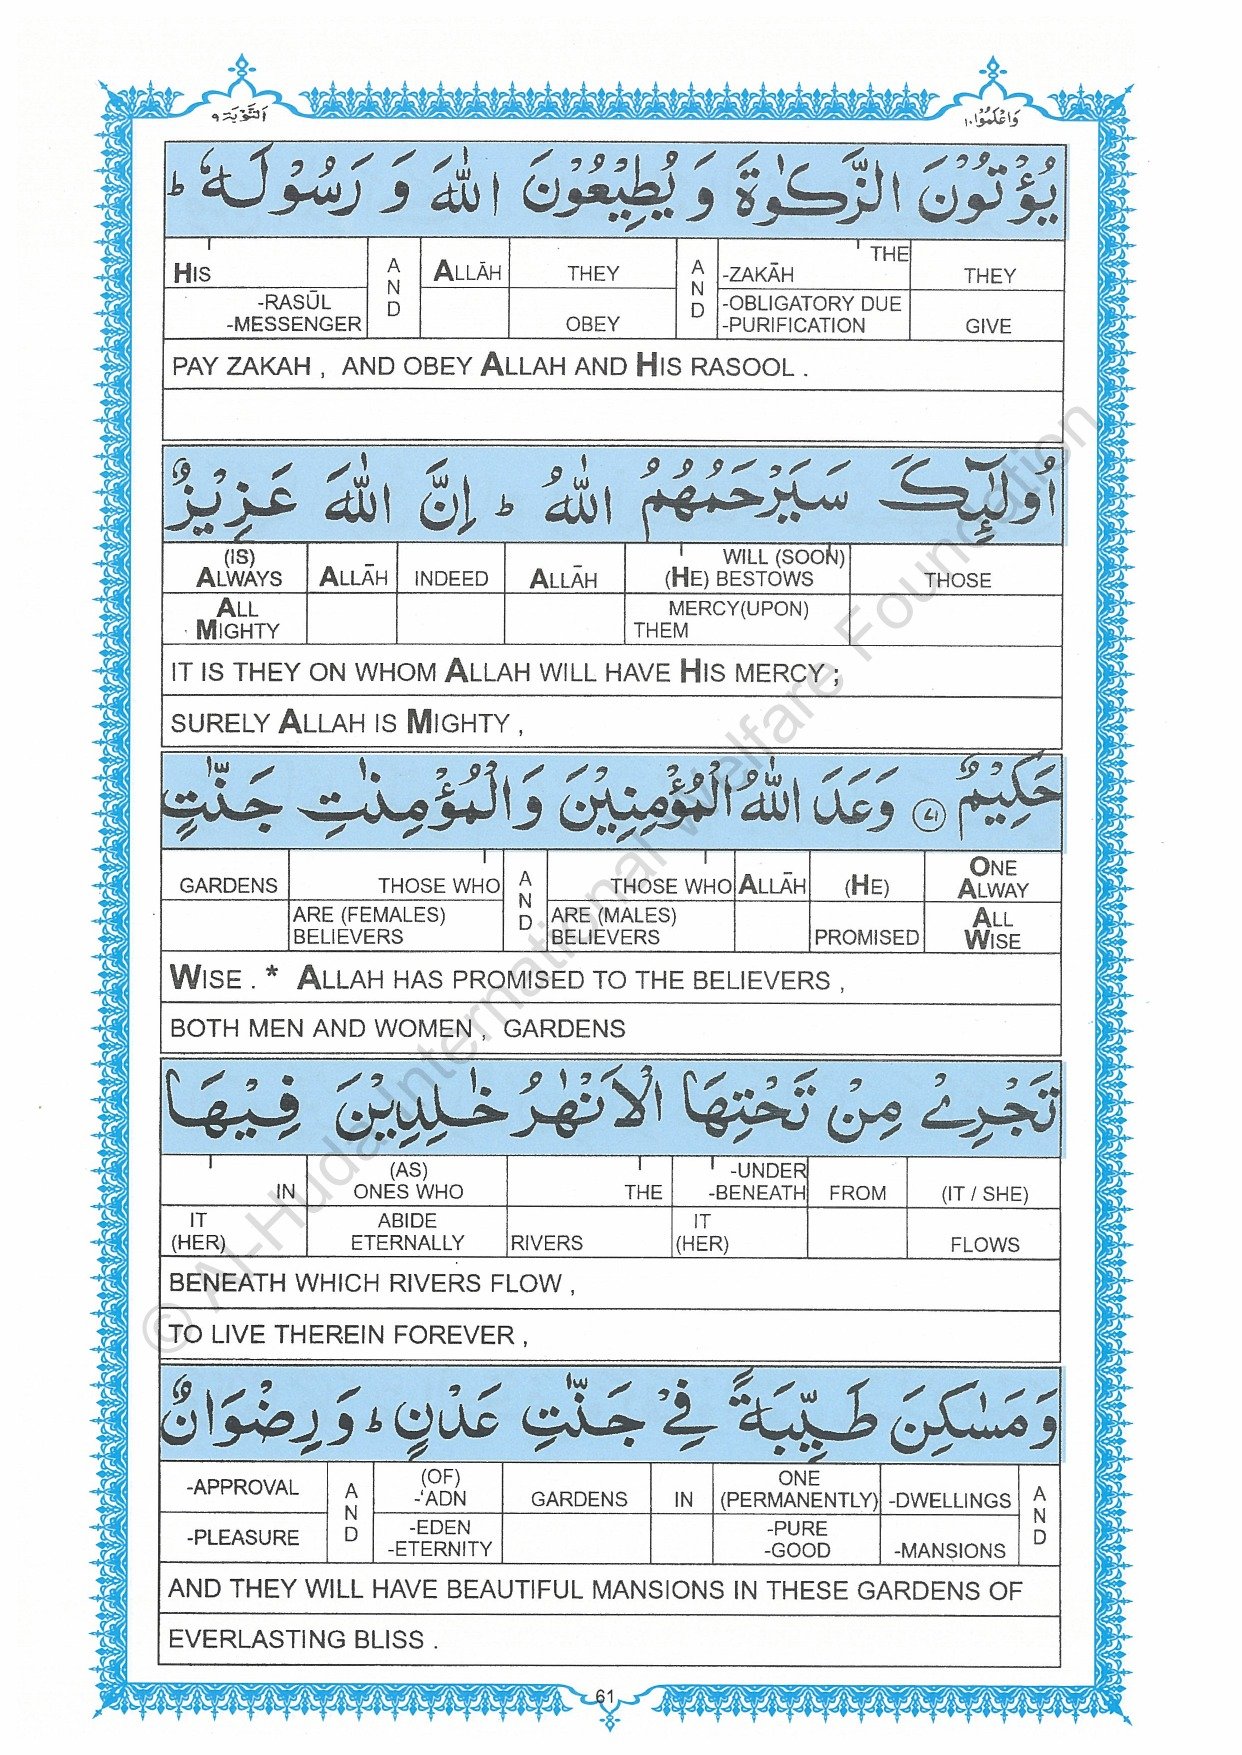 التَّوْبَة ٩
وَاعْلَمُوْا ١٠
يُؤْتُوْنَ الزَّكٰوةَ وَ يُطِيْعُوْنَ اللّٰهَ وَ رَسُوْلَهٗ ؕ
HIS AND ALLĀH THEY AND -ZAKĀH THE THEY
-RASŪL -MESSENGER OBEY -OBLIGATORY DUE -PURIFICATION GIVE
PAY ZAKAH , AND OBEY ALLAH AND HIS RASOOL .
اُولٰٓئِكَ سَيَرْحَمُهُمُ اللّٰهُ ؕ اِنَّ اللّٰهَ عَزِيْزٌ
(IS) ALWAYS ALLĀH INDEED ALLĀH WILL (SOON) (HE) BESTOWS THOSE
ALL MIGHTY MERCY(UPON) THEM
IT IS THEY ON WHOM ALLAH WILL HAVE HIS MERCY ;
SURELY ALLAH IS MIGHTY ,
حَكِيْمٌ ٧١ وَعَدَ اللّٰهُ الْمُؤْمِنِيْنَ وَالْمُؤْمِنٰتِ جَنّٰتٍ
GARDENS THOSE WHO AND THOSE WHO ALLĀH (HE) ONE ALWAY
ARE (FEMALES) BELIEVERS ARE (MALES) BELIEVERS PROMISED ALL WISE
WISE . * ALLAH HAS PROMISED TO THE BELIEVERS ,
BOTH MEN AND WOMEN , GARDENS
تَجْرِيْ مِنْ تَحْتِهَا الْاَنْهٰرُ خٰلِدِيْنَ فِيْهَا
IN (AS) ONES WHO THE -UNDER -BENEATH FROM (IT / SHE)
IT (HER) ABIDE ETERNALLY RIVERS IT (HER) FLOWS
BENEATH WHICH RIVERS FLOW ,
TO LIVE THEREIN FOREVER ,
وَ مَسٰكِنَ طَيِّبَةً فِيْ جَنّٰتِ عَدْنٍ ؕ وَ رِضْوَانٌ
-APPROVAL AND (OF) -'ADN GARDENS IN ONE (PERMANENTLY) -DWELLINGS AND
-PLEASURE -EDEN -ETERNITY -PURE -GOOD -MANSIONS
AND THEY WILL HAVE BEAUTIFUL MANSIONS IN THESE GARDENS OF
EVERLASTING BLISS .
61
© Al-Huda International Welfare Foundation